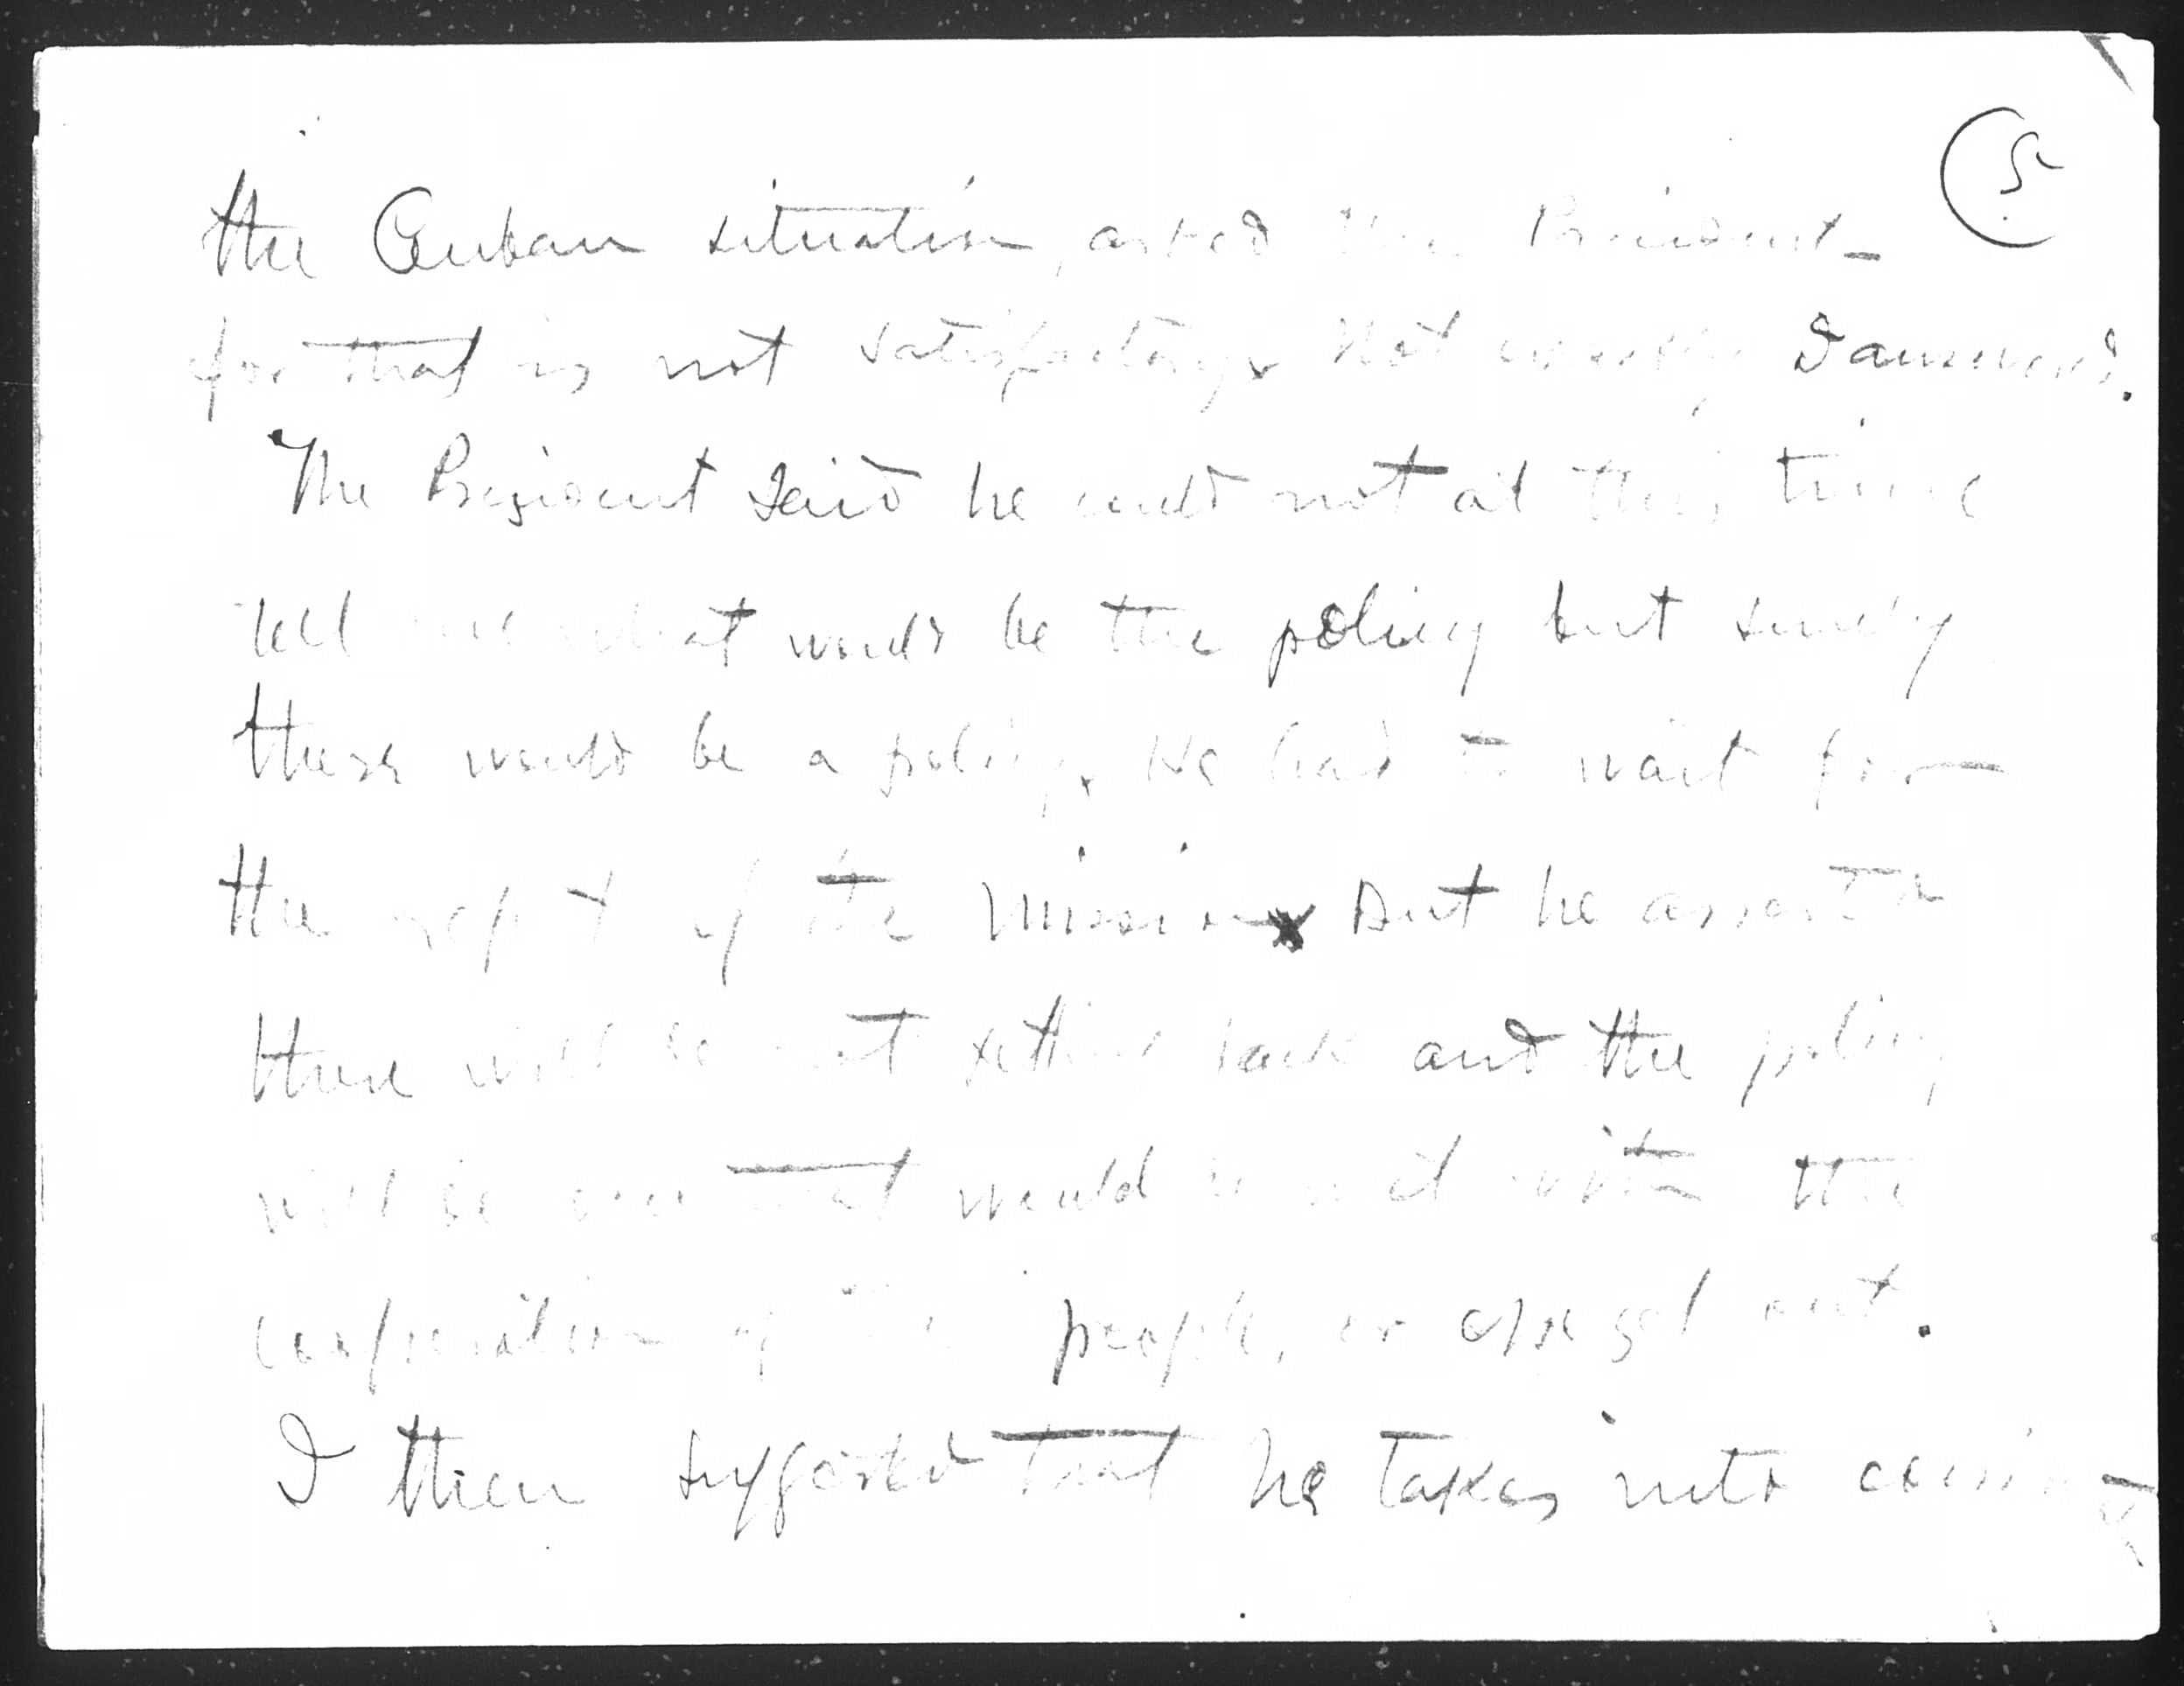 5
the Cuban situation, asked the President
for that is not satisfactory. Not exactly I answered.
The President said he could not at this time
tell me what would be the policy but surely
there would be a policy. He had to wait for
the report of the Mission. But he asserted
there will be not setting back and the policy
will be one that would meet with the
cooperation of the people, or else get out.
I then suggested that he takes into